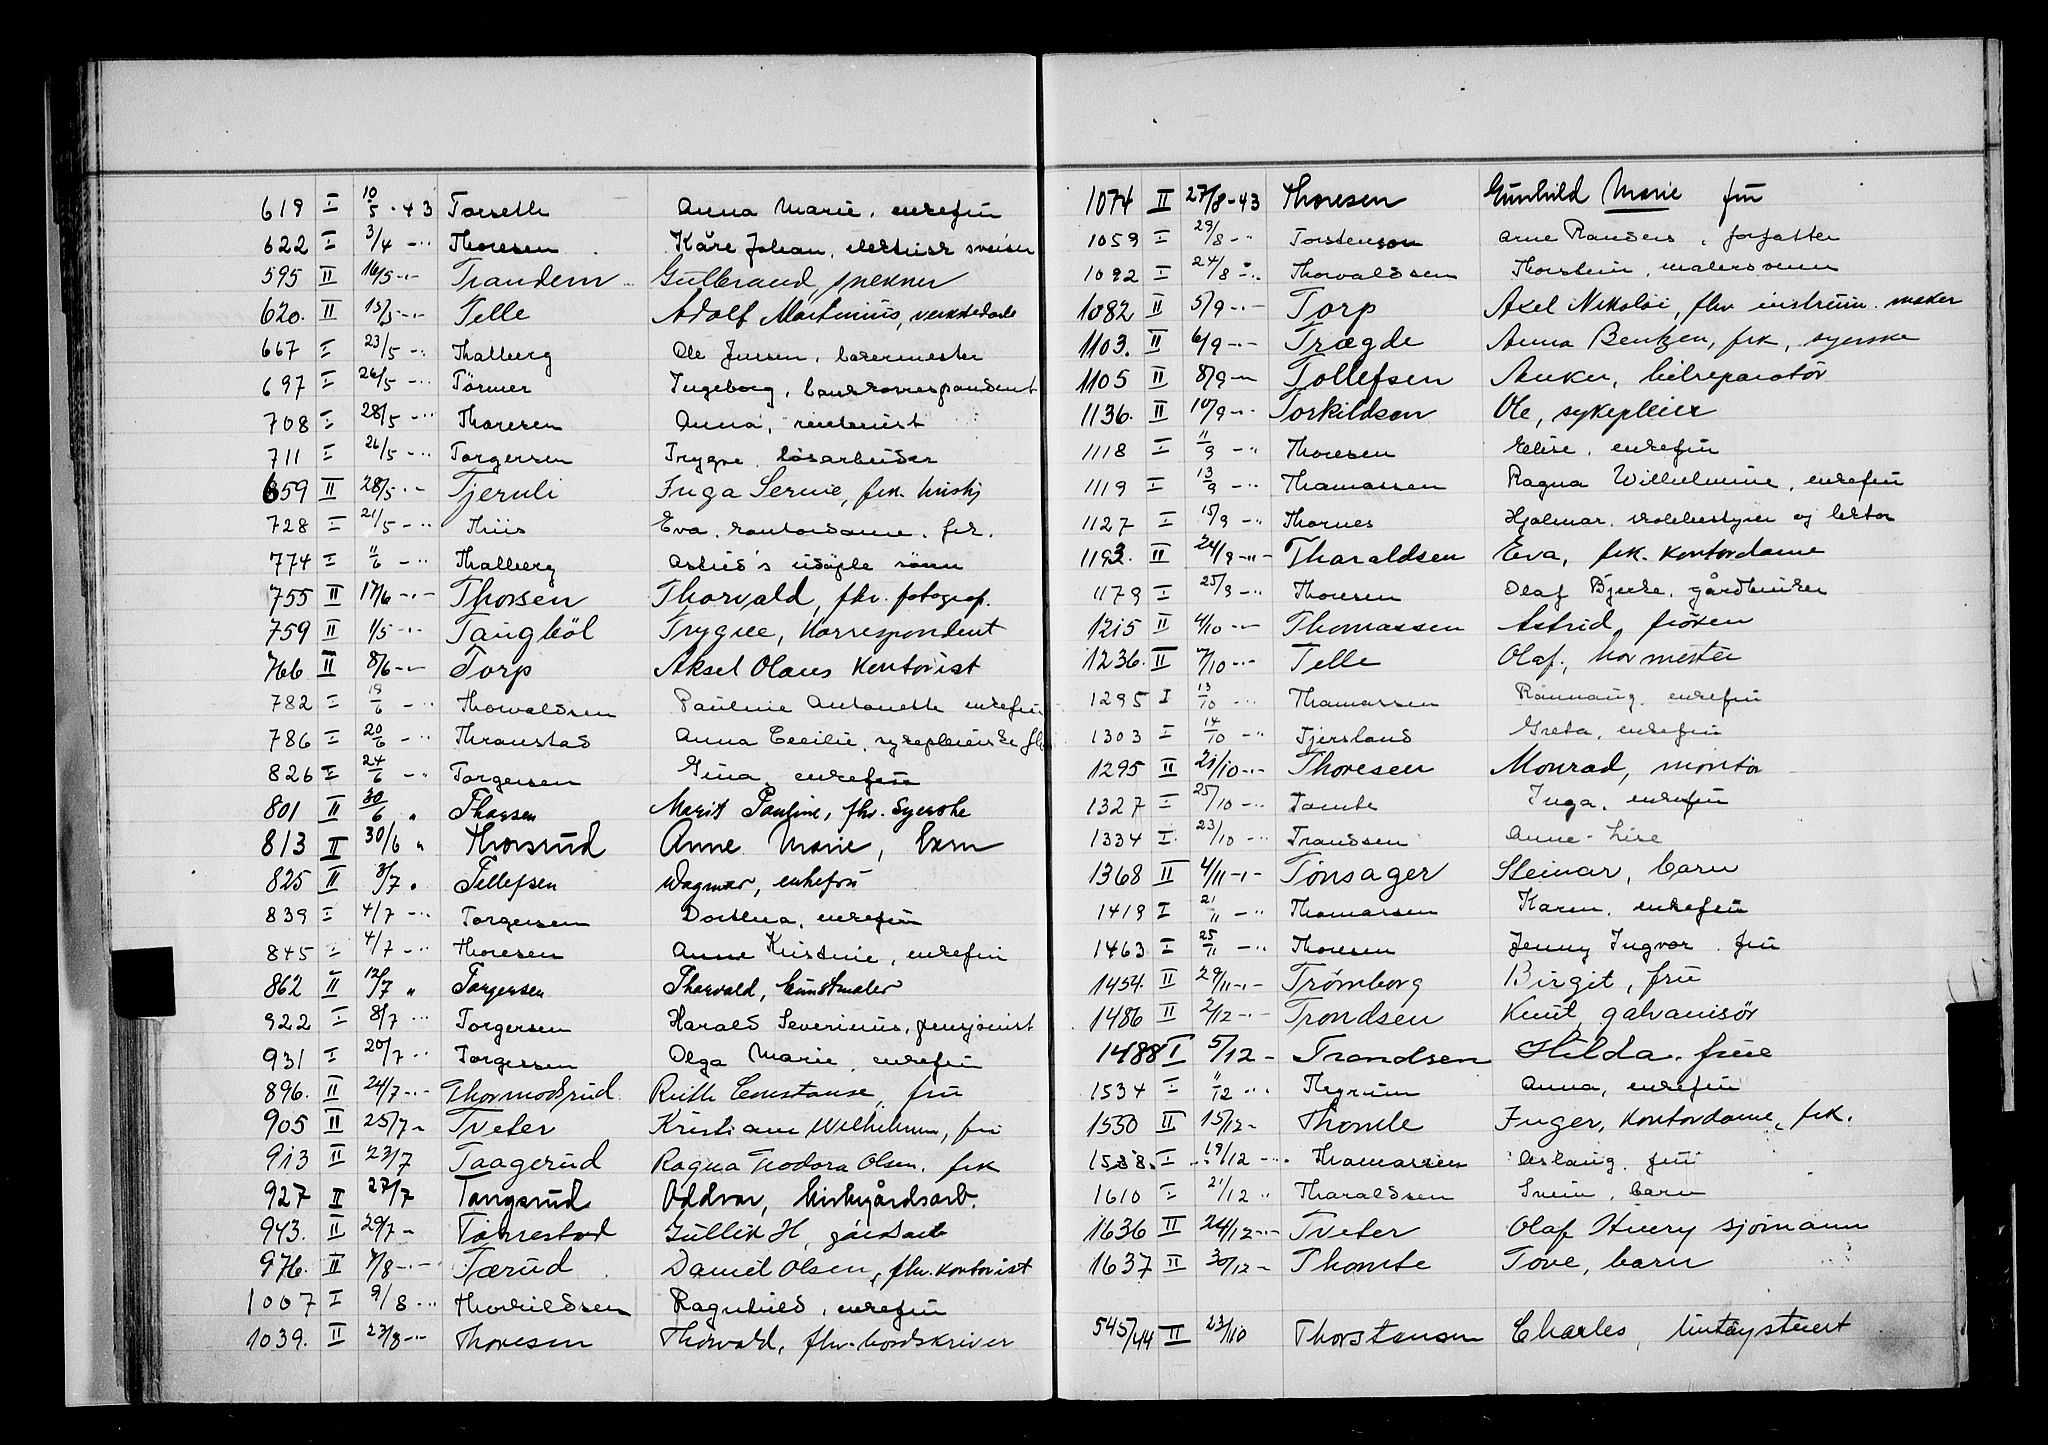 619 I 10/5-43 Torseth Anna Marie, enkefru
622 I 3/4 -"- Thoresen Kåre Johan, elektrisk sveiser
595 II 16/5 -"- Trandem Gulbrand, snekker
620. II 15/5 -"- Telle Adolf Martinius, verkstedarb
667 I 23/5 -"- Thalberg Ole Jensen, bakermester
697 I 26/5 -"- Törmer Ingeborg, bankkorrespondent
708 I 28/5 -"- Thoresen Anna,
711 I 26/5 -"- Torgersen Trygve, løsarbeider
659 II 28/5 -"- Tjernli Inga Serine, frk. hushj
728 I 21/5 -"- Thiis Eva, kontordame, frk.
774 I 11/6 -"- Thalberg Astrid's udøpte sønn
755 II 17/6 -"- Thorsen Thorvald, fhv. fotograf.
759 II 1/5 -"- Taugbøl Trygve, korrespondent
766 II 8/6 -"- Torp Aksel Olaus kontorist
782 I 19/6 -"- Thorvaldsen Pauline Antonette enkefru
786 I 20/6 -"- Thranstad Anna Cecilie, sykepleierske
826 I 24/6 -"- Torgersen Gina, enkefru
801 II 30/6 " Thorsen Marit Pauline, fhv. Syerske
813 II 30/6 " Thorsrud Anne Marie, barn
825 II 3/7 " Tellefsen Dagmar, enkefru
839 I 4/7 -"- Torgersen Dorthea, enkefru
845 I 4/7 -"- Thoresen Anne Kristine, enkefru
862 II 12/7 " Torgersen Thorvald, kunstmaler
922 I 8/7 -"- Torgersen Harald Severinus, pensjonist
931 I 20/7 -"- Torgersen Olga Marie, enkefru
896. II 24/7 -"- Thormodsrud Ruth Constanse, fru
905 II 25/7 - Tveter Kristiane Wilhelmine, fru
913 II 23/7 Taagerud Ragna Teodora Olsen, frk
927 II 27/7 Tangerud Oddvar, kirkegårdsarb.
943. II 29/7 - Tørrestad Gullik H, gårdarb
976. II 7/8 -"- Tærud Daniel Olsen, fhv. kontorist
1007 I 9/8 -"- Thorkildsen Ragnhild, enkefru
1039. II 23/8 -"- Thoresen Thorvald, fhv. bordskriver
1074 II 27/8-43 Thoresen Gunhild Marie fru
1059 I 29/8 -"- Torstenson Arne Randers, forfatter
1092 I 24/8 -"- Thorvaldsen Thorstein, malersvenn
1082 II 5/9 -"- Torp Axel Nikolai, fhv. instrum. maker
1103. II 6/9 -"- Trægde Anna Bentzen, frk, syerske
1105 II 8/9 -"- Tollefsen Anker, bilreparatør
1136. II 10/9 -"- Torkildsen Ole, sykepleier
1118 I 11/9 -"- Thoresen Elise, enkefru
1119 I 13/9 -"- Thomassen Ragna Wilhelmine, enkefru
1127 I 15/9 -"- Thornes Hjalmar, skolebestyrer og lektor
1193. II 24/9 -"- Tharaldsen Eva, frk. kontordame
1179 I 25/9 -"- Thoresen Olaf Bjerke, gårdbruker
1215 II 4/10 -"- Thomassen Astrid, frøken
1236. II 7/10 -"- Telle Olaf, hovmester
1295 I 13/10 -"- Thomassen Rønnaug, enkefru
1303 I 14/10 -"- Tjersland Greta, enkefru
1295 II 21/10 -"- Thoresen Monrad, montør
1327 I 25/10 -"- Tomte Inga, enkefru
1334 I 23/10 -"- Trondsen Anne-Lise
1368 II 4/11 -"- Tønsager Steinar, barn
1419 I 21/11 -"- Thomassen Karen, enkefru
1463 I 25/11 -"- Thoresen Jenny Ingvor, fru
1454. II 29/11 -"- Trømborg Birgit, fru
1486 II 2/12 -"- Trondsen Knut, galvanisør
1488 I 5/12 - Trondsen Hilda, frue
1534 I 11/12 -"- Thegrum Anna, enkefru
1550 II 15/12 - Thomle Inger, kontordame, frk.
1538. I 19/12 -"- Thomassen Aslaug, fru
1610 I 21/12 " Tharaldsen Svein, barn
1636 II 24/12 -"- Tveter Olaf Henry sjømann
1637 II 30/12 - Thomte Tove, barn
545/44 II 23/10 Thorstensen Charles,